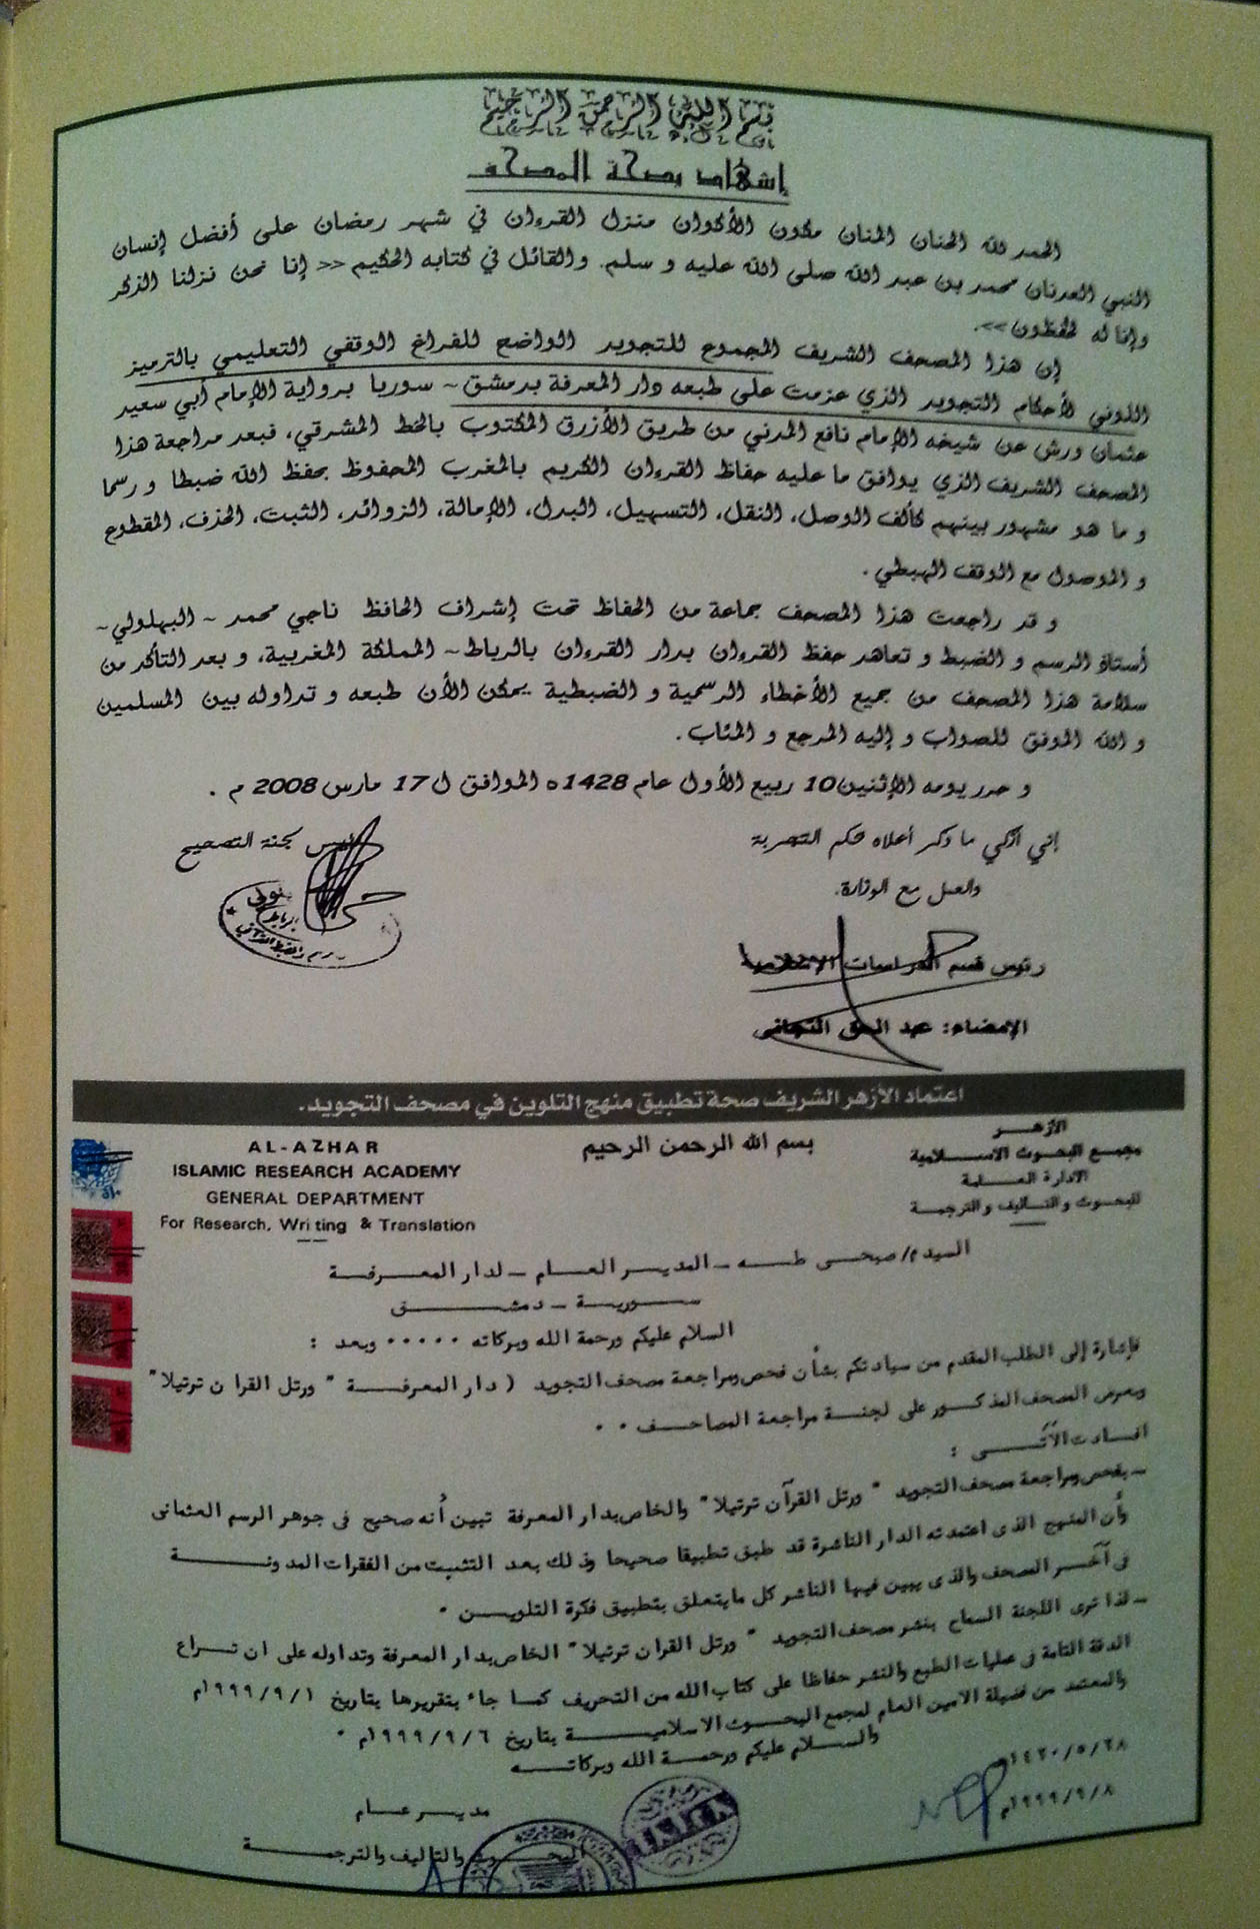 بسم الله الرحمن الرحيم
إشهاد بصحة المصحف
الحمد لله الحنان المنان مكون الأكوان منزل القرءان في شهر رمضان على أفضل إنسان
النبي العدنان محمد بن عبد الله صلى الله عليه و سلم. والقائل في كتابه الحكيم << إنا نحن نزلنا الذكر
وإنا له لحفظون>>.
إن هذا المصحف الشريف المجموع للتجويد الواضح للفراغ الوقفي التعليمي بالترميز
اللوني لأحكام التجويد الذي عزمت على طبعه دار المعرفة بدمشق ~ سوريا برواية الإمام أبي سعيد
عثمان ورش عن شيخه الإمام نافع المدني من طريق الأزرق المكتوب بالخط المشرقي، فبعد مراجعة هذا
المصحف الشريف الذي يوافق ما عليه حفاظ القرءان الكريم بالمغرب المحفوظ بحفظ الله ضبطا و رسما
و ما هو مشهور بينهم كألف الوصل، النقل، التسهيل، البدل، الإمالة، الزوائد، الثبت، الحذف، المقطوع
و الموصول مع الوقف الهبطي.
و قد راجعت هذا المصحف جماعة من الحفاظ تحت إشراف الحافظ ناجي محمد ~ البهلولي~
أستاذ الرسم و الضبط و تعاهد حفظ القرءان بدار القرءان بالرباط~ المملكة المغربية، و بعد التأكد من
سلامة هذا المصحف من جميع الأخطاء الرسمية و الضبطية يمكن الأن طبعه و تداوله بين المسلمين
و الله الموفق للصواب و إليه المرجع و المئاب.
و حرر يومه الإثنين10 ربيع الأول عام 1428ه الموافق ل 17 مارس 2008 م .
إني أزكي ما ذكر أعلاه بحكم التجربة
والعمل مع الوزارة.
رئيس لجنة التصحيح
رئيس قسم الدراسات الإسلامية
الإمضاء: عبد الحق التجاني
اعتماد الأزهر الشريف صحة تطبيق منهج التلوين في مصحف التجويد.
الأزهـــر
مجمع البحوث الاسـلامية
الادارة العـــامة
للبحوث والتأليف والترجمـة
بسم الله الرحمن الرحيم
AL-AZHAR
ISLAMIC RESEARCH ACADEMY
GENERAL DEPARTMENT
For Research, Writing & Translation
السيد م/ صبحى طـه ـ المديـر العـام ـ لدار المعـرفـة
سـوريـة ـ دمشـق
السلام عليكم ورحمة الله وبركاته ..... وبعد :
فإشارة إلى الطلب المقدم من سيادتكم بشأن فحص ومراجعة مصحف التجويد ( دار المعرفـة " ورتل القران ترتيلا"
وبعرض المصحف المذكـور على لجنـة مراجعة المصاحـف . .
افـادت الآتـى :
ـ بفحص ومراجعة مصحف التجويد " ورتل القرآن ترتيلا" والخاص بدار المعرفة تبين أنه صحيح فى جوهر الرسم العثمانى
وأن المنهج الذى اعتمدته الدار الناشرة قد طبق تطبيقا صحيحا وذلك بعد التثبت من الفقرات المدونـة
فى آخـر المصحف والذى يبين فيها الناشر كل مايتعلق بتطبيق فكرة التلويـن .
ـ لذا ترى اللجنة السماح بنشر مصحف التجويد " ورتل القران ترتيلا" الخاص بدار المعرفة وتداوله على ان تـراع
الدقة التامة فى عمليات الطبع والنشر حفاظا على كتاب الله من التحريف كمـا جاء بتقريرها بتاريخ ١٩٩٩/٩/١م
والمعتمد من فضيلة الامين العام لمجمع البحـوث الاسلاميـة بتاريخ ١٩٩٩/٩/٦م .
والسـلام عليكم ورحمـة الله وبركاتـه
١٤٢٠/٥/٢٨هـ
١٩٩٩/٩/٨م
مديـر عـام
البحـوث والتاليف والترجمـة